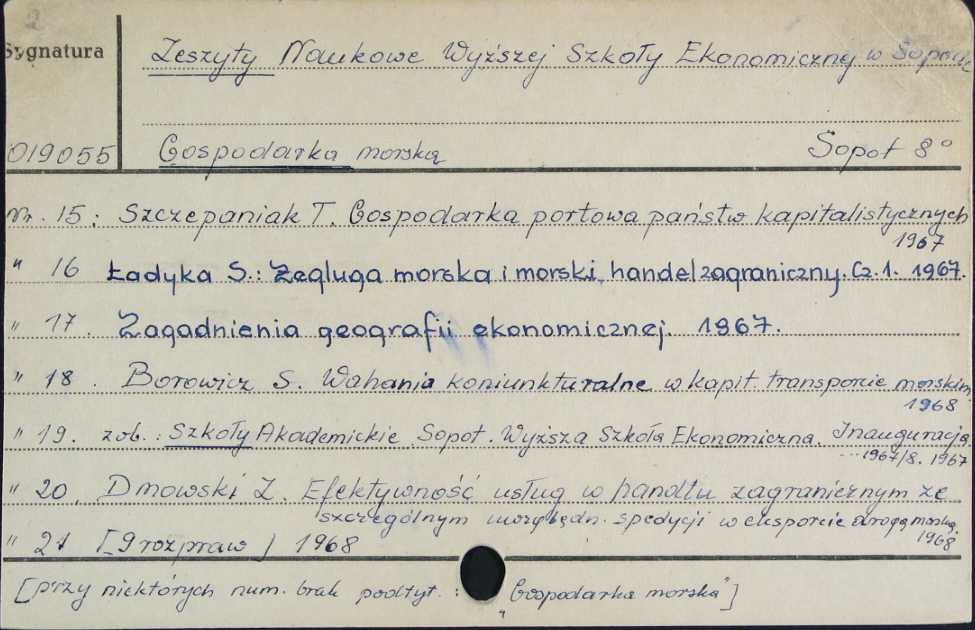 2
Sygnatura
Zeszyty Naukowe Wyższej Szkoły Ekonomicznej w Sopocie
019055 Gospodarka morska Sopot 8°
Nr. 15: Szczepaniak T. Gospodarka portowa państw kapitalistycznych
1967
" 16 Ładyka S.: Żegluga morska i morski handel zagraniczny. Cz. 1. 1967.
" 17. Zagadnienia geografii ekonomicznej. 1967.
" 18. Borowicz S. Wahania koniunkturalne w kapit. transporcie morskim
1968
" 19. zob.: Szkoły Akademickie. Sopot. Wyższa Szkoła Ekonomiczna. Inauguracja
... 1967/8. 1967
" 20. Dmowski Z. Efektywność usług w handlu zagranicznym ze
szczególnym uwzględn. spedycji w eksporcie drogą morską.
1968
" 21 [9 rozpraw] 1968
[przy niektórych num. brak podtyt.: "Gospodarka morska"]